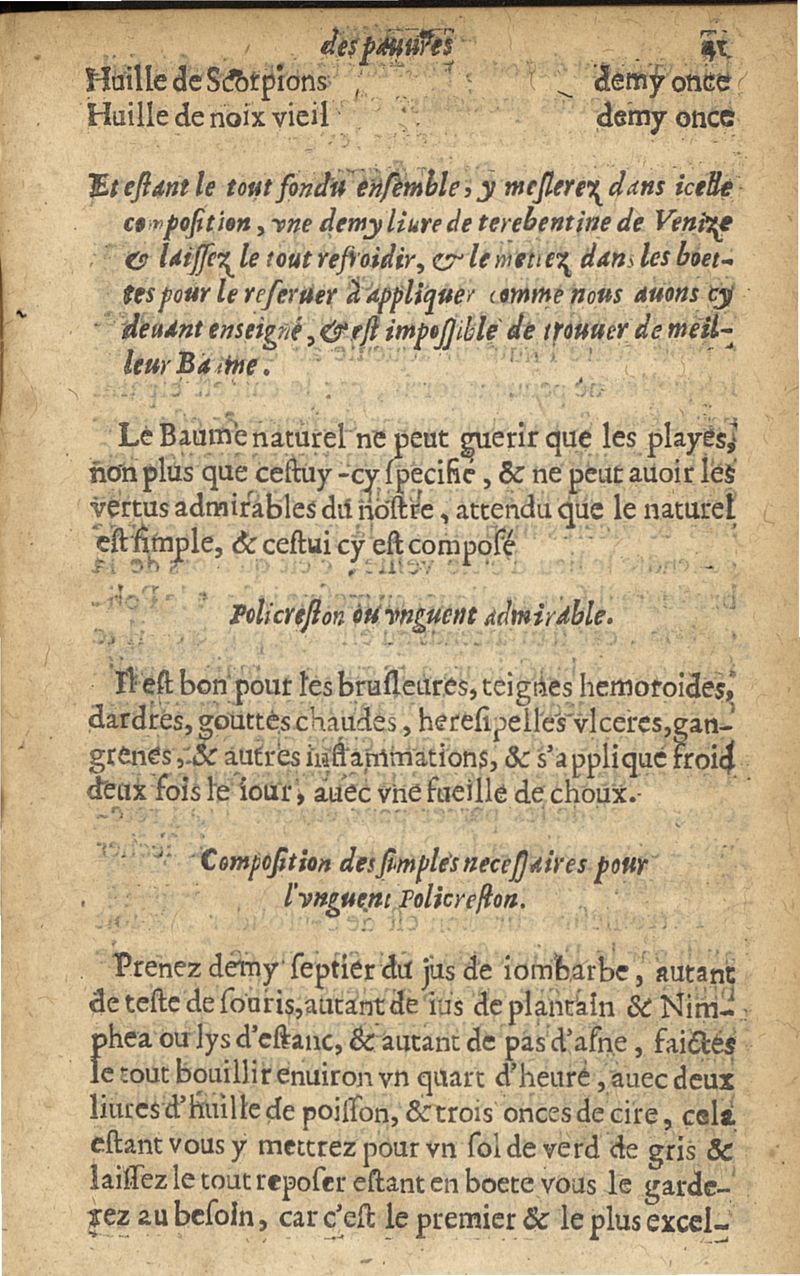 des pauures
Huille de Scorpions demy once
Huille de noix vieil demy once
Et estant le tout fondu ensemble, y meslerez dans icelle
composition, vne demy liure de terebentine de Venize
& laissez le tout refroidir, & le mettez dans les boet-
tes pour le reseruer à appliquer comme nous auons cy
deuant enseigné, & est impossible de trouuer de meil-
leur Baume.
Le Baume naturel ne peut guerir que les playes,
non plus que cestuy-cy specifié, & ne peut auoir les
vertus admirables du nostre, attendu que le naturel
est simple, & cestui cy est composé
Policreston ou vnguent admirable.
Il est bon pour les brusleures, teignes hemoroides,
dardres, gouttes chaudes, heresipelles vlceres, gan-
grenes, & autres inflammations, & s'applique froid
deux fois le iour, auec vne fueille de choux.
Composition des simples necessaires pour
l'vnguent Policreston.
Prenez demy septier du jus de iombarbe, autant
de teste de souris, autant de ius de plantain & Nim-
phea ou lys d'estanc, & autant de pas d'asne, faictes
le tout bouillir enuiron vn quart d'heure, auec deux
liures d'huille de poisson, & trois onces de cire, cela
estant vous y mettrez pour vn sol de verd de gris &
laissez le tout reposer estant en boete vous le garde-
rez au besoin, car c'est le premier & le plus excel-